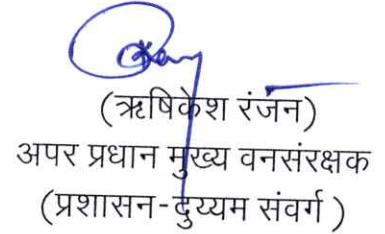 (ऋषिकेश रंजन)
अपर प्रधान मुख्य वनसंरक्षक
(प्रशासन-दुय्यम संवर्ग )